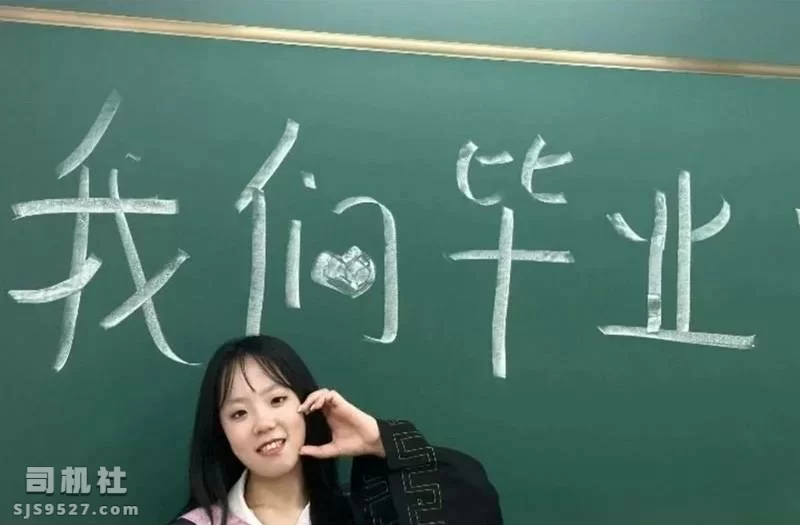 我们毕业
司机社
SJS9527.COM